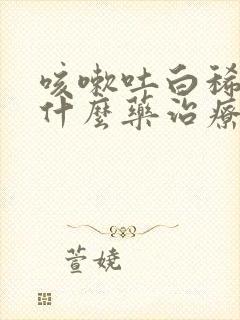 咳嗽吐白稀
什麼藥治療
萱嬈